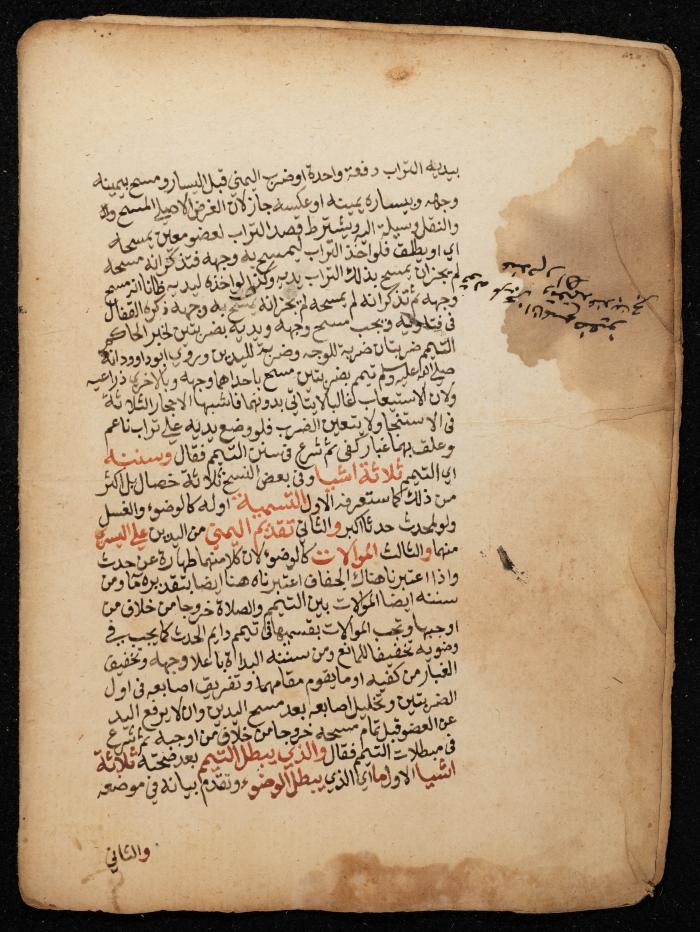 بيديه التراب دفعة واحدة او ضرب اليمني قبل اليسار ومسح بيمينه
وجهه وبيساره يمينه او عكسه جاز لان الغرض الاصلي المسح
والنقل وسيلة اليه ويشترط قصد التراب لعضو معين يمسحه
اي او يطلق فلو اخذ التراب ليمسح به وجهه فتذكر انه مسحه
لم يجز ان يمسح بذلك التراب يديه وكذا لو اخذه ليديه ظانا انه مسح
وجهه ثم تذكر انه لم يمسحه لم يجز انه يمسح به وجهه ذكره القفال
في فتاويه ويجب مسح وجهه ويديه بضربتين لخبر الحاكم
التيمم ضربتان ضربة للوجه وضربة لليدين وروي ابو داود انه
صلي الله عليه وسلم تيمم بضربتين مسح باحداهما وجهه وبالاخري ذراعيه
ولان الاستيعاب غالبا لا يتاتي بدونهما فاشبها الاحجار الثلاثة
في الاستنجا ولا يتعين الضرب فلو وضع يديه علي تراب ناعم
وعلق بهما غبار كفي ثم شرع في سنن التيمم فقال وسننه
اي التيمم ثلاثة اشيا وفي بعض النسخ ثلاثة خصال بل اكثر
من ذلك كما ستعرفه الاول التسمية اوله كالوضوء والغسل
ولو لمحدث حدثا اكبر والثاني تقديم اليمني من اليدين علي اليسري
منهما والثالث الموالات كالوضوء لان كلا منهما طهارة عن حدث
واذا اعتبرنا هناك الجفاف اعتبرناه هنا ايضا بتقديره ماء ومن
سننه ايضا الموالات بين التيمم والصلاة خروجا من خلاف من
اوجبها وتجب الموالات بقسميها في تيمم دايم الحدث كما يجب في
وضوئه تخفيفا للمانع ومن سننه البداة باعلا وجهه وتخفيف
الغبار من كفيه او ما يقوم مقامهما وتفريق اصابعه في اول
الضربتين وتخليل اصابعه بعد مسح اليدين وان لا يرفع اليد
عن العضو قبل تمام مسحه خروجا من خلاف من اوجبه ثم شرع
في مبطلات التيمم فقال والذي يبطل التيمم بعد صحته ثلاثة
اشيا الاول ما اي الذي يبطل الوضوء وتقدم بيانه في موضعه
والثاني